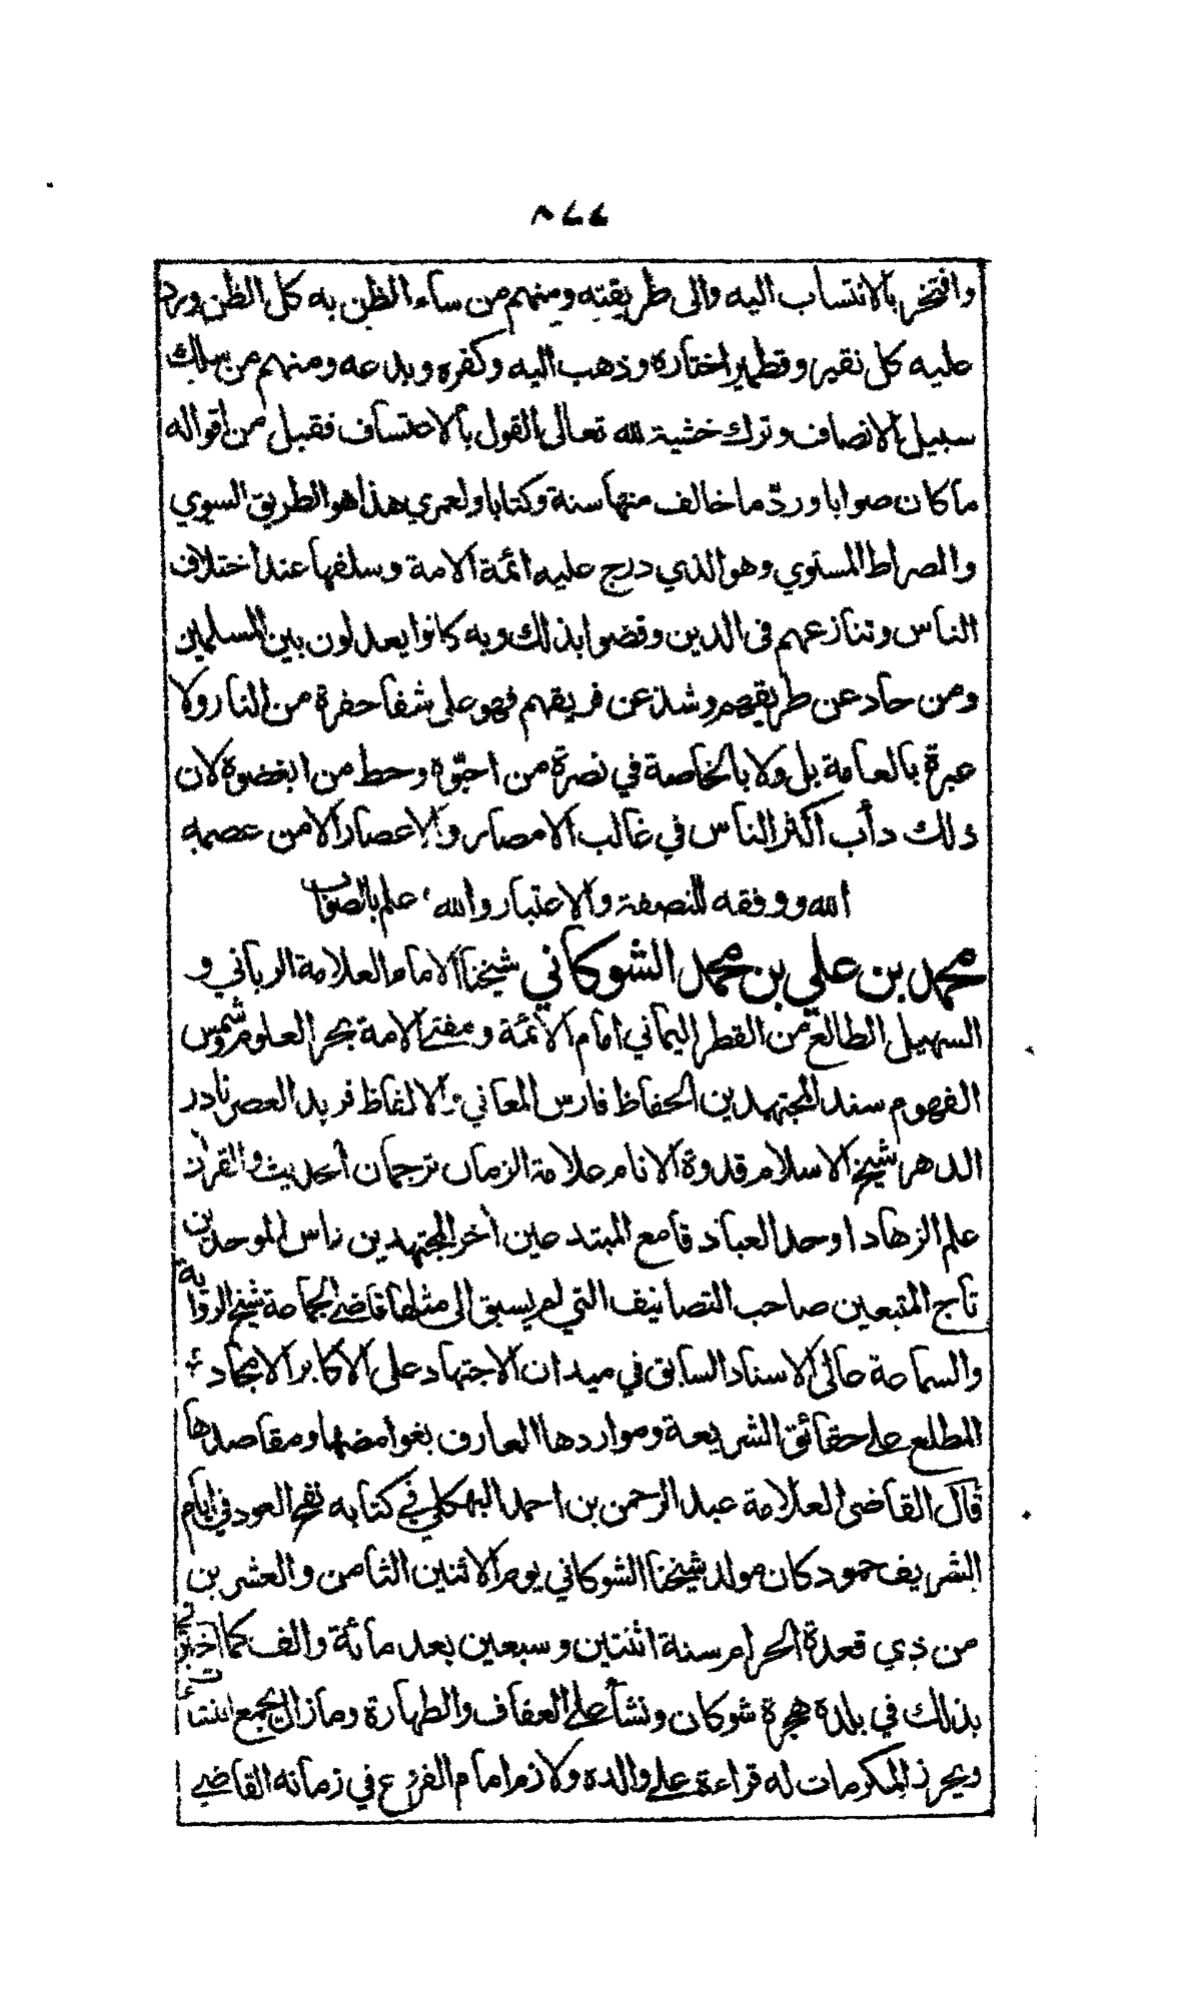 ٨٧٧
وافتخر بالانتساب اليه والى طريقته ومنهم من ساء الظن به كل الظن ورد
عليه كل نقير وقطمير اختاره وذهب اليه وكفره وبدعه ومنهم من سلك
سبيل الانصاف وترك خشية لله تعالى القول بالاعتساف فقبل من اقواله
ما كان صوابا وردّ ما خالف منها سنة وكتابا ولعمري هذا هو الطريق السوي
والصراط المستوي وهو الذي درج عليه ائمة الامة وسلفها عند اختلاف
الناس وتنازعهم في الدين وقضوا بذلك وبه كانوا يعدلون بين المسلمين
ومن حاد عن طريقهم وشذ عن فريقهم فهو على شفا حفرة من النار ولا
عبرة بالعامة بل ولا بالخاصة في نصرة من احبّوه وحط من ابغضوه لان
ذلك دأب اكثر الناس في غالب الامصار والاعصار الا من عصمه
الله ووفقه للنصفة والاعتبار والله اعلم بالصواب
محمد بن علي بن محمد الشوكاني شيخنا الامام العلامة الرباني و
السهيل الطالع من القطر اليماني امام الائمة ومفتي الامة بحر العلوم وشمس
الفهوم سند المجتهدين الحفاظ فارس المعاني والالفاظ فريد العصر نادر
الدهر شيخ الاسلام قدوة الانام علامة الزمان ترجمان الحديث والقران
علم الزهاد اوحد العباد قامع المبتدعين آخر المجتهدين راس الموحدين
تاج المتبعين صاحب التصانيف التي لم يسبق الى مثلها قاضي الجماعة شيخ الرواية
والسماعة عالي الاسناد السابق في ميدان الاجتهاد على الاكابر الامجاد
المطلع على حقائق الشريعة ومواردها العارف بغوامضها ومقاصدها
قال القاضي العلامة عبد الرحمن بن احمد البهكلي في كتابه نفح العود في ايام
الشريف حمود كان مولد شيخنا الشوكاني يوم الاثنين الثامن والعشرين
من ذي قعدة الحرام سنة اثنتين وسبعين بعد مائة والف كما اخبرني
بذلك في بلده هجرة شوكان ونشأ على العفاف والطهارة وما زال يجمع
ويحرز المكرمات له قراءة على والده ولازم امام الفروع في زمانه القاضي